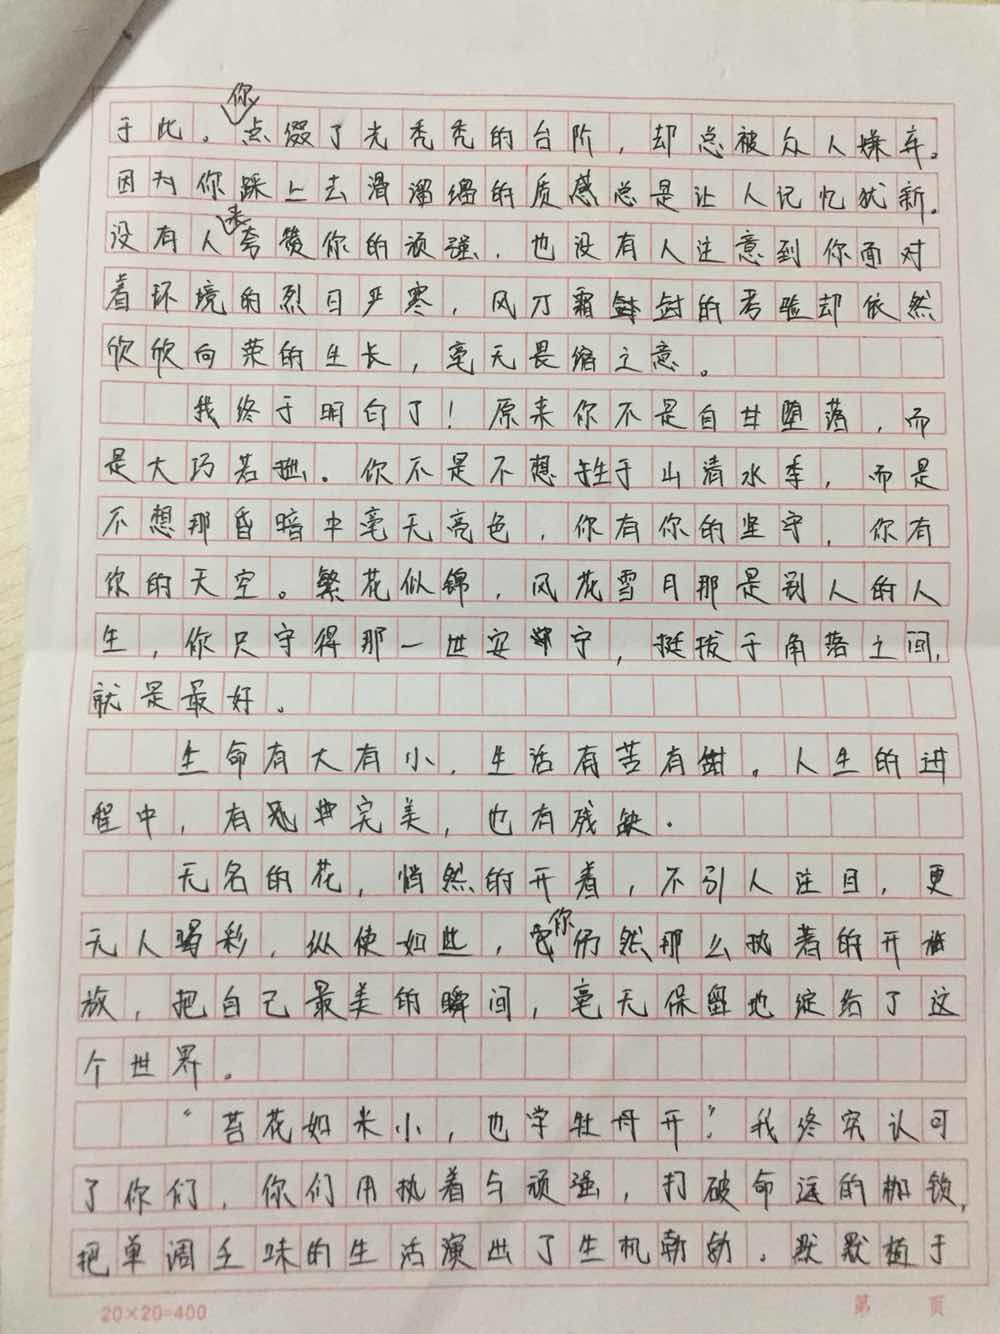 于此。你点缀了光秃秃的台阶，却总被众人嫌弃。
因为你踩上去滑溜溜的质感总是让人记忆犹新。
没有人去夸赞你的顽强，也没有人注意到你面对
着环境的烈日严寒，风刀霜剑的考验却依然
欣欣向荣的生长，毫无畏缩之意。
我终于明白了！原来你不是自甘堕落，而
是大巧若拙。你不是不想生于山清水秀，而是
不想那昏暗中毫无亮色，你有你的坚守，你有
你的天空。繁花似锦，风花雪月那是别人的人
生，你只守得那一世安宁，挺拔于角落之间，
就是最好。
生命有大有小，生活有苦有甜。人生的进
程中，有完美，也有残缺.
无名的花，悄然的开着，不引人注目，更
无人喝彩，纵使如此，你仍然那么执着的开
放，把自己最美的瞬间，毫无保留地绽给了这
个世界。
“苔花如米小，也学牡丹开”。我终究认可
了你们，你们用执着与顽强，打破命运的枷锁，
把单调乏味的生活演出了生机勃勃，默默植于
20×20=400
第 页